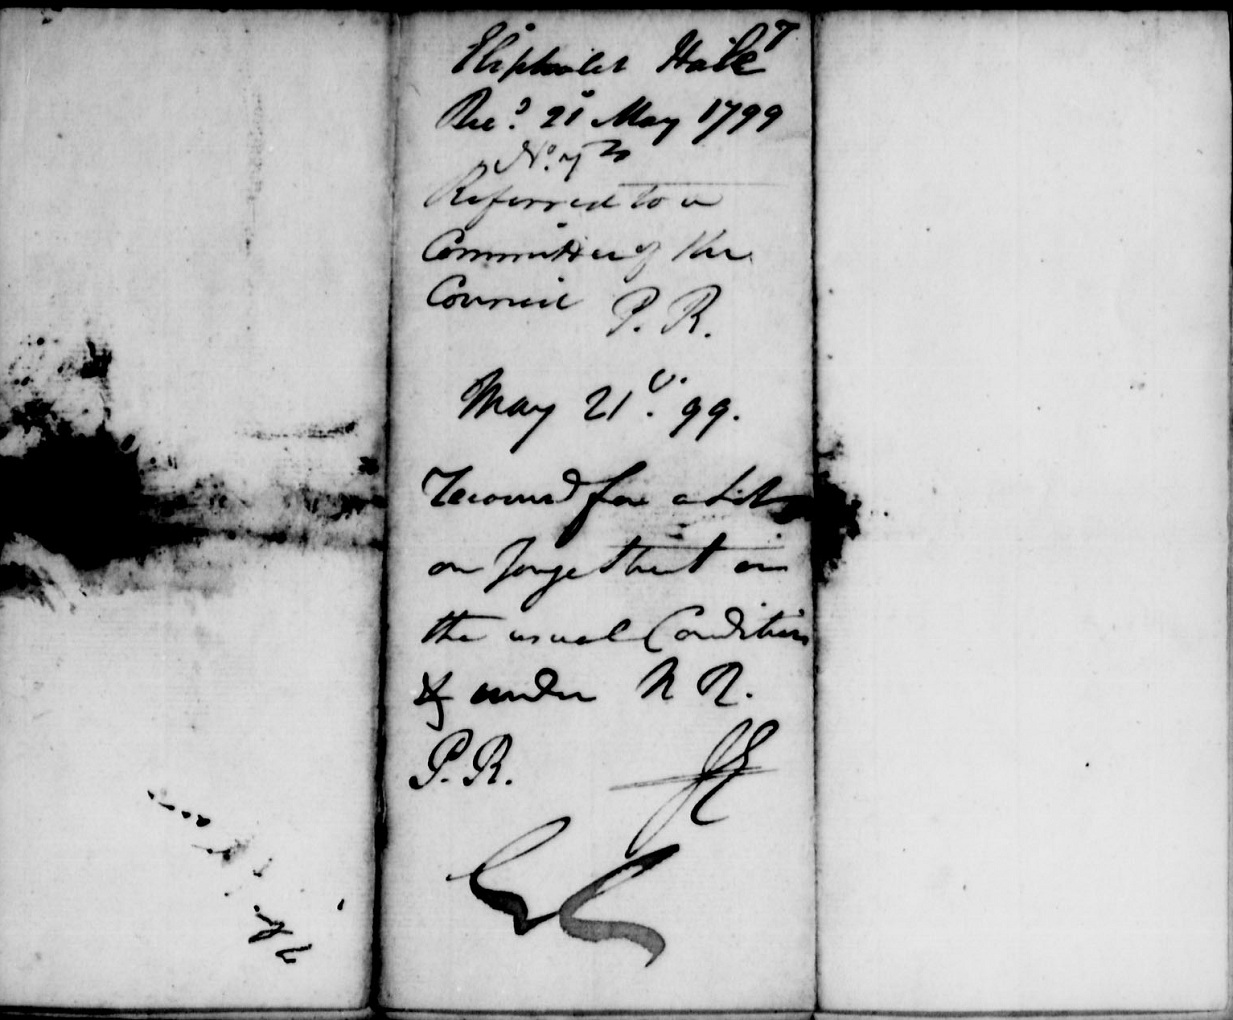 Eliphalet Hale
7
Rec.d 21 May 1799
No. 7
Referred to a
Committee of the
Council P. R.
May 21. 99.
Recomd for a Lot
on Yonge Street on
the usual Conditions
& under N R.
P. R. JE